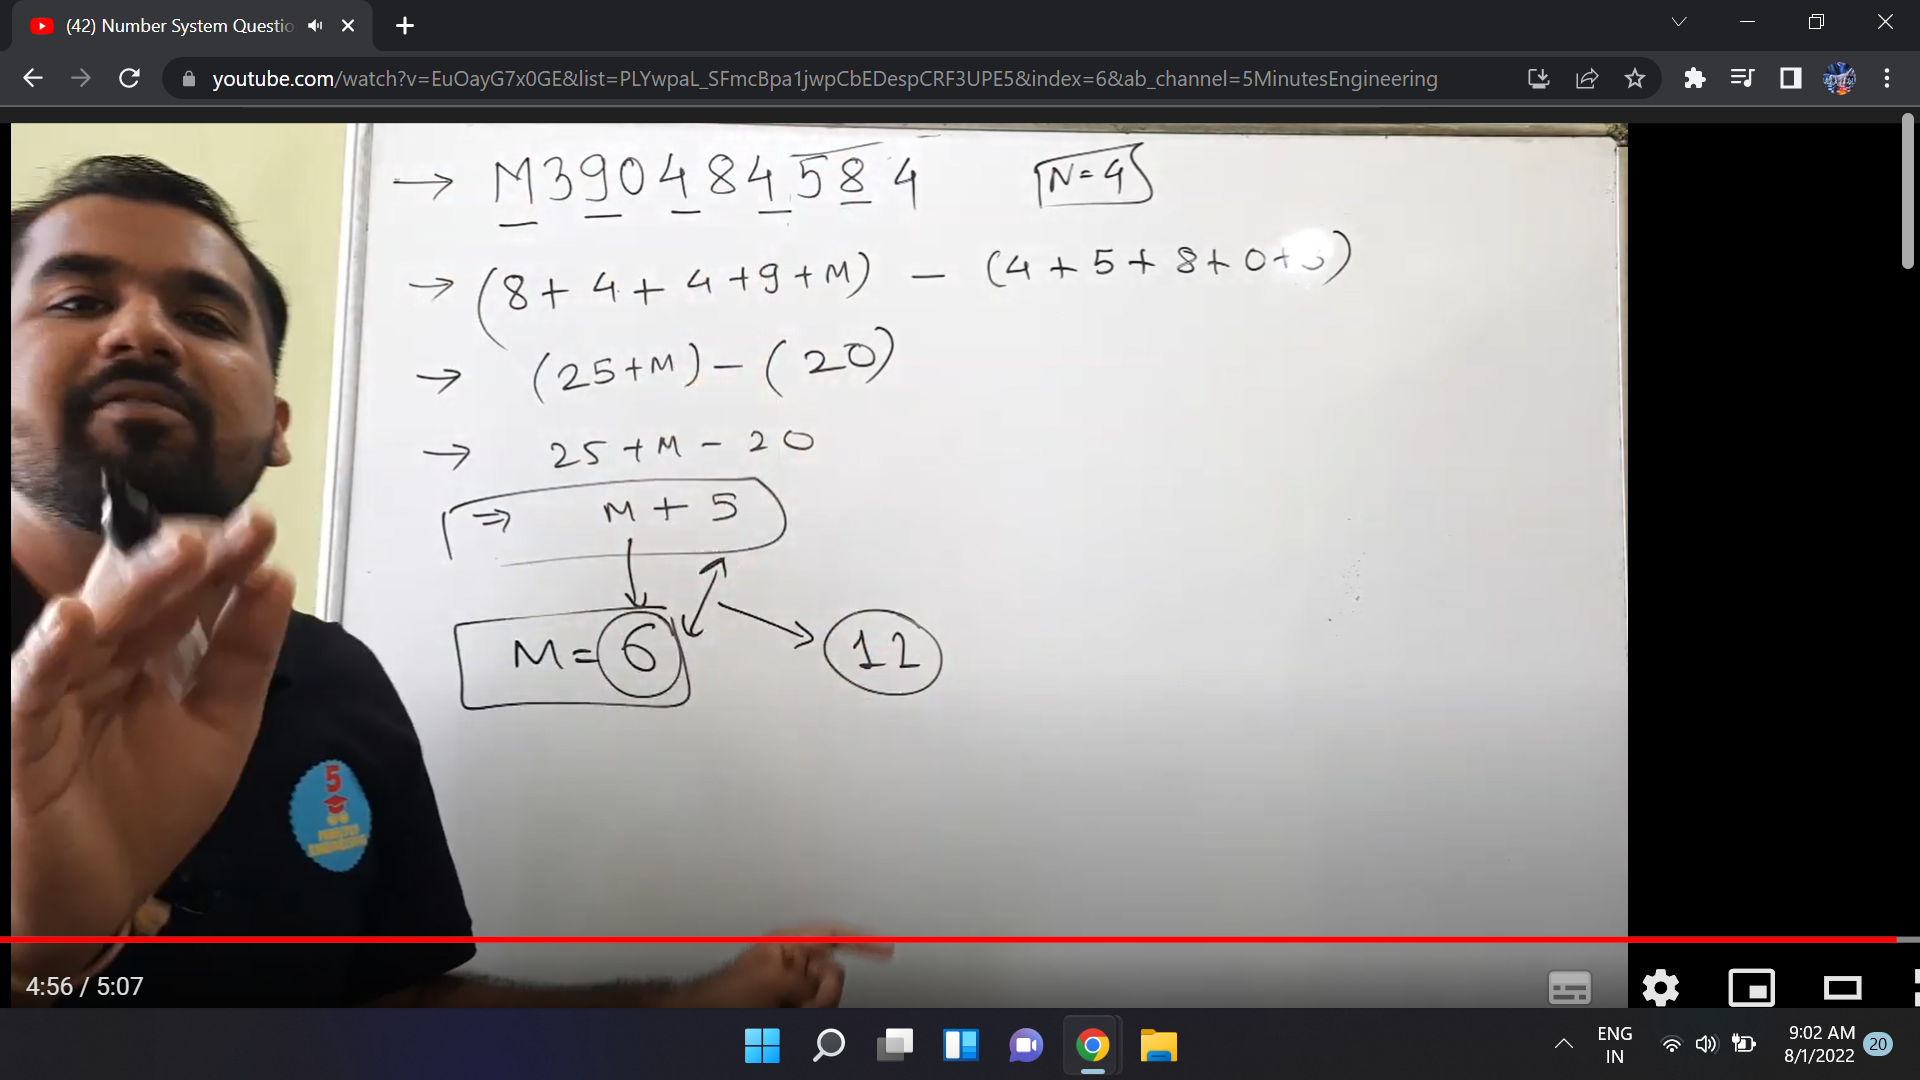 (42) Number System Questio
youtube.com/watch?v=EuOayG7x0GE&list=PLYwpaL_SFmcBpa1jwpCbEDespCRF3UPE5&index=6&ab_channel=5MinutesEngineering
→ M390484584 N=4
→ (8+4+4+9+M) - (4+5+8+0+
→ (25+M)-(20)
→ 25+M-20
⇒ M+5
M=6 12
5
MINUTES
ENGINEERING
4:56 / 5:07
ENG
IN
9:02 AM
8/1/2022
20